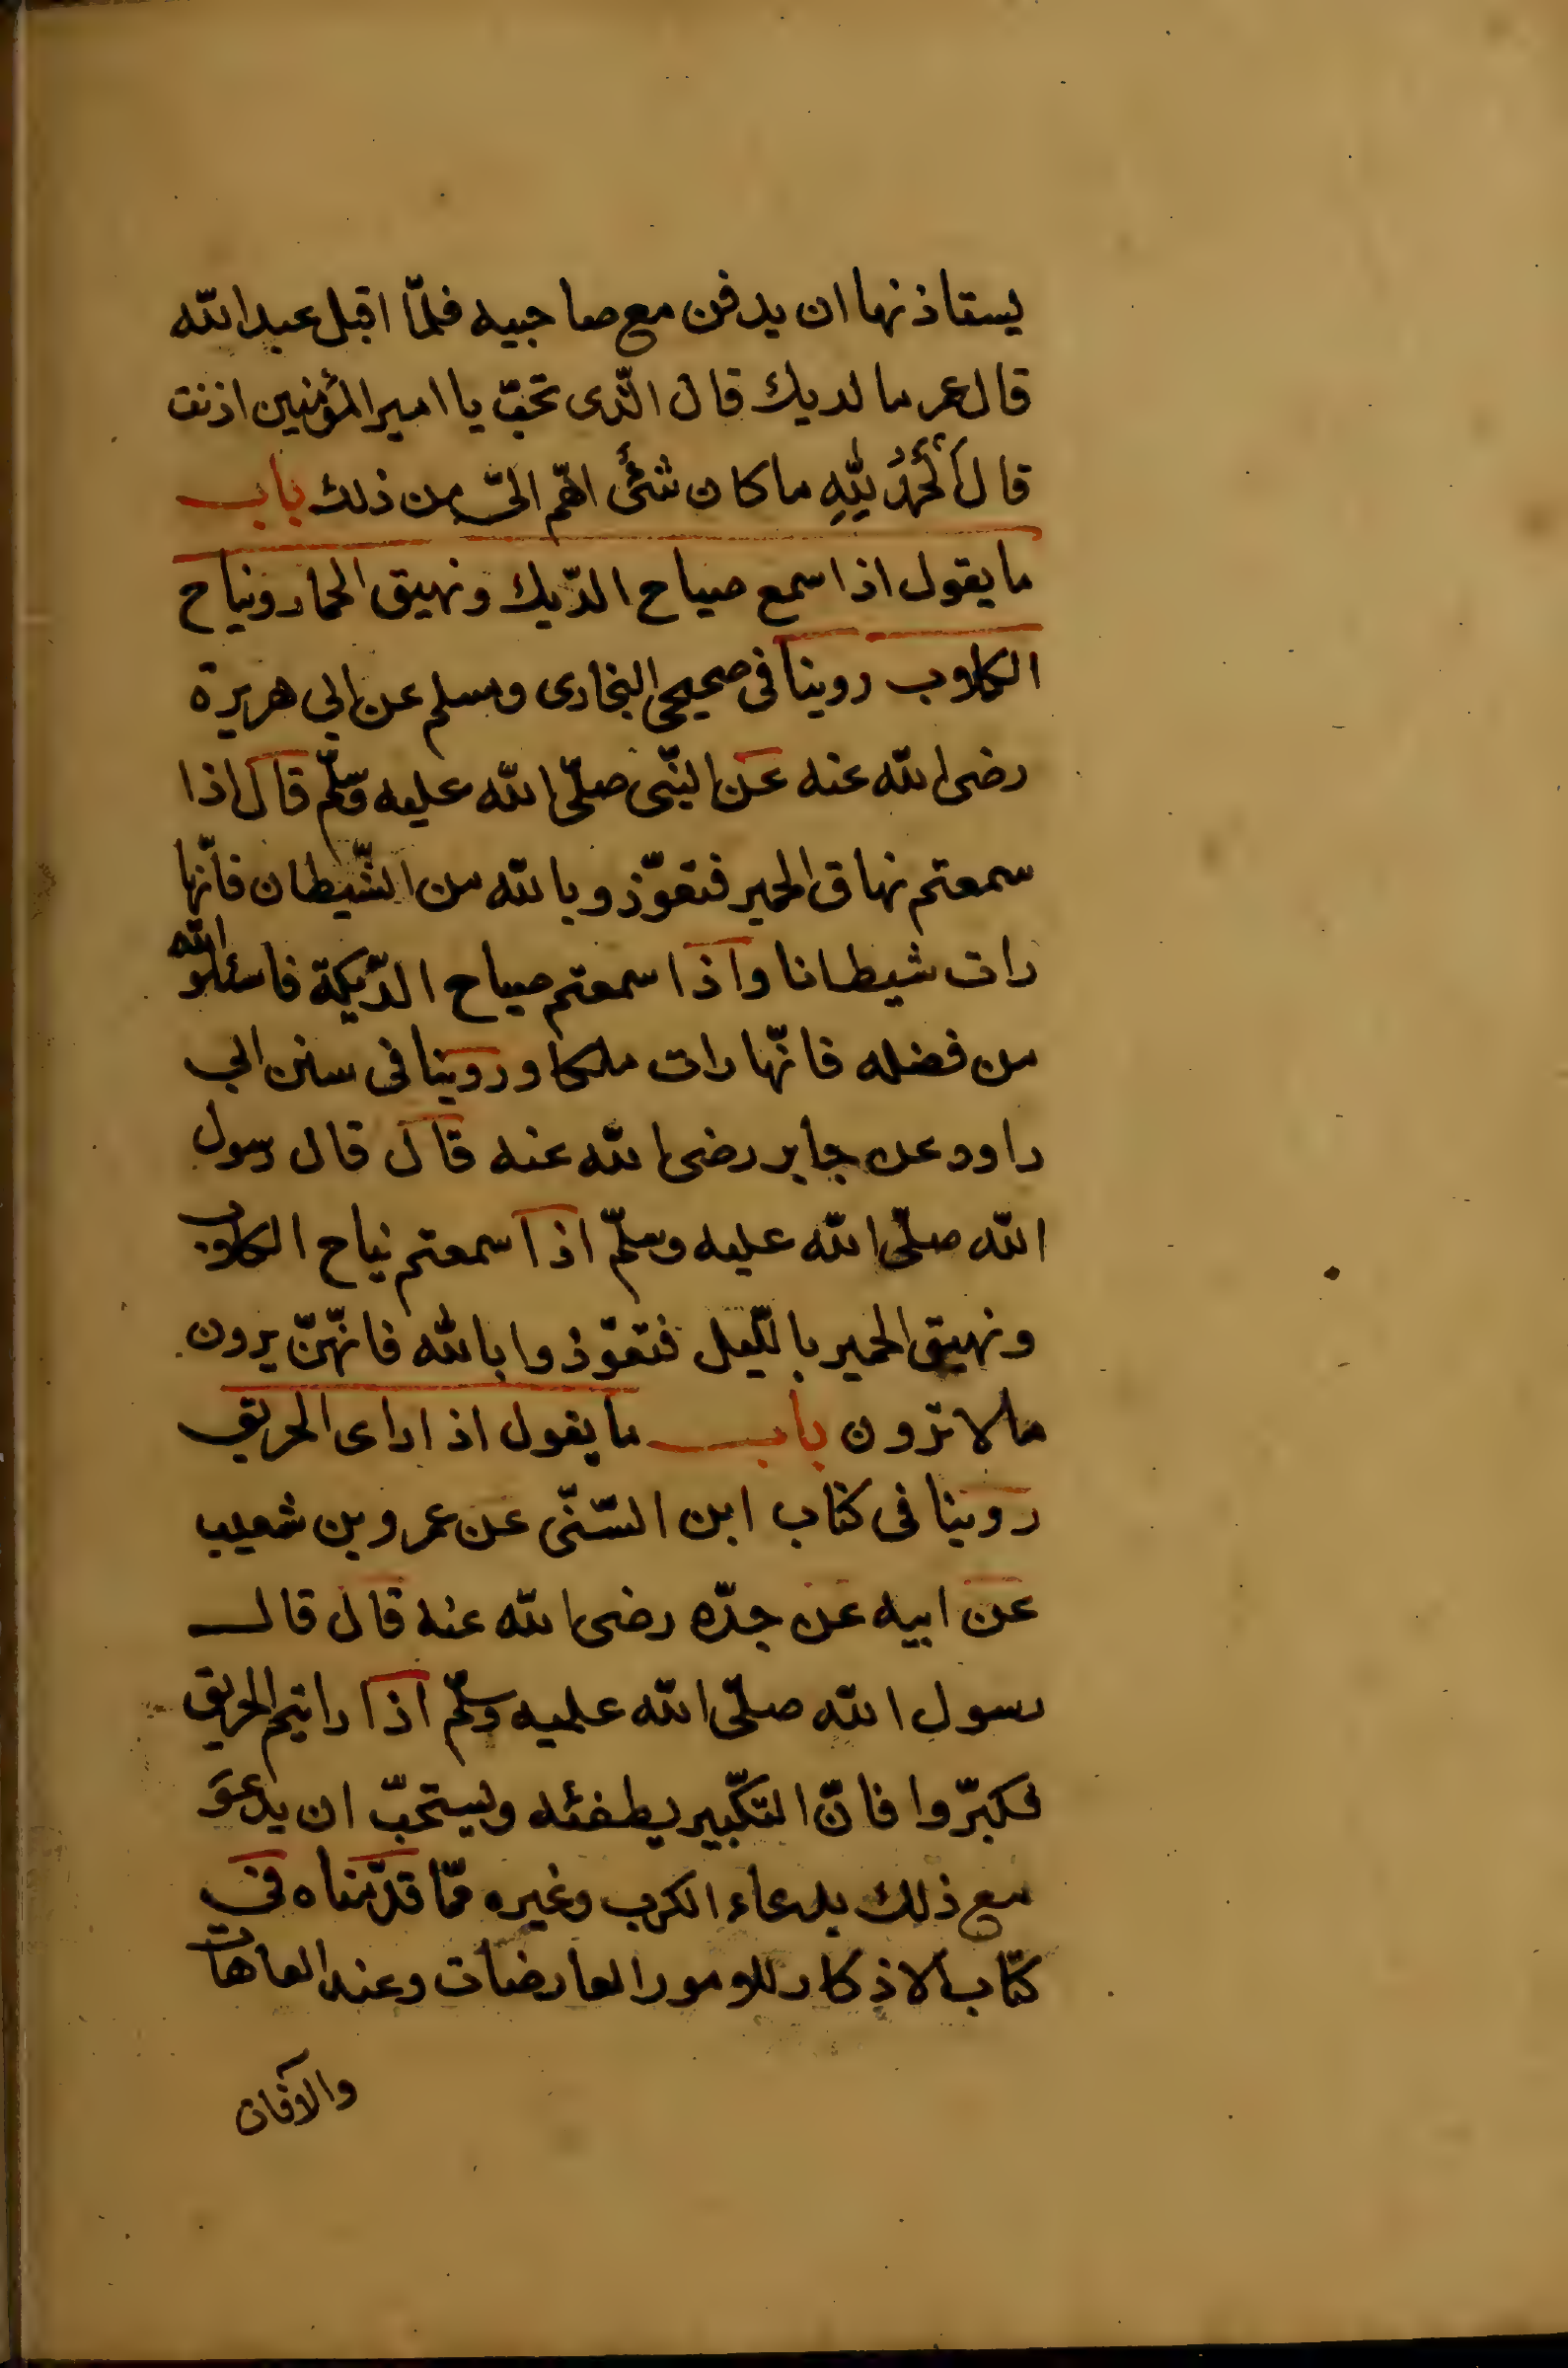 يستاذنها ان يدفن مع صاحبيه فلمّا اقبل عبد الله
قال عمر ما لديك قال الّذى تحبّ يا امير المؤمنين اذنت
قال اَلْحَمْدُ لِلّٰهِ ما كان شئ اهّم الىّ من ذلك باب
ما يقول اذا سمع صياح الدّيك ونهيق الحمار ونباح
الكلاب روينا فى صحيحى البخارى ومسلم عن ابي هريرة
رضى الله عنه عن النّبى صلّى الله عليه وسلّم قال اذا
سمعتم نهاق الحمير فتعوّذوا بالله من الشّيطان فانّها
رات شيطانا واذا سمعتم صياح الدّيكة فاسئلوا الله
من فضله فانّها رات ملكا وروينا فى سنن ابي
داود عن جابر رضى الله عنه قال قال رسول
الله صلّى الله عليه وسلّم اذا سمعتم نباح الكلاب
ونهيق الحمير بالّليل فتعوّذوا بالله فانّهنّ يرون
ما لا ترون باب ما يقول اذا راى الحريق
روينا فى كتاب ابن السّنّى عن عمرو بن شعيب
عن ابيه عن جدّه رضى الله عنه قال قال
رسول الله صلّى الله عليه وسلّم اذا رايتم الحريق
فكبّروا فانّ التكّبير يطفئه ويستحبّ ان يدعوَ
مع ذلك بدعاء الكرب وغيره ممّا قدّمناه في
كتاب الاذكار للامور العارضات وعند العاهات
والآفات